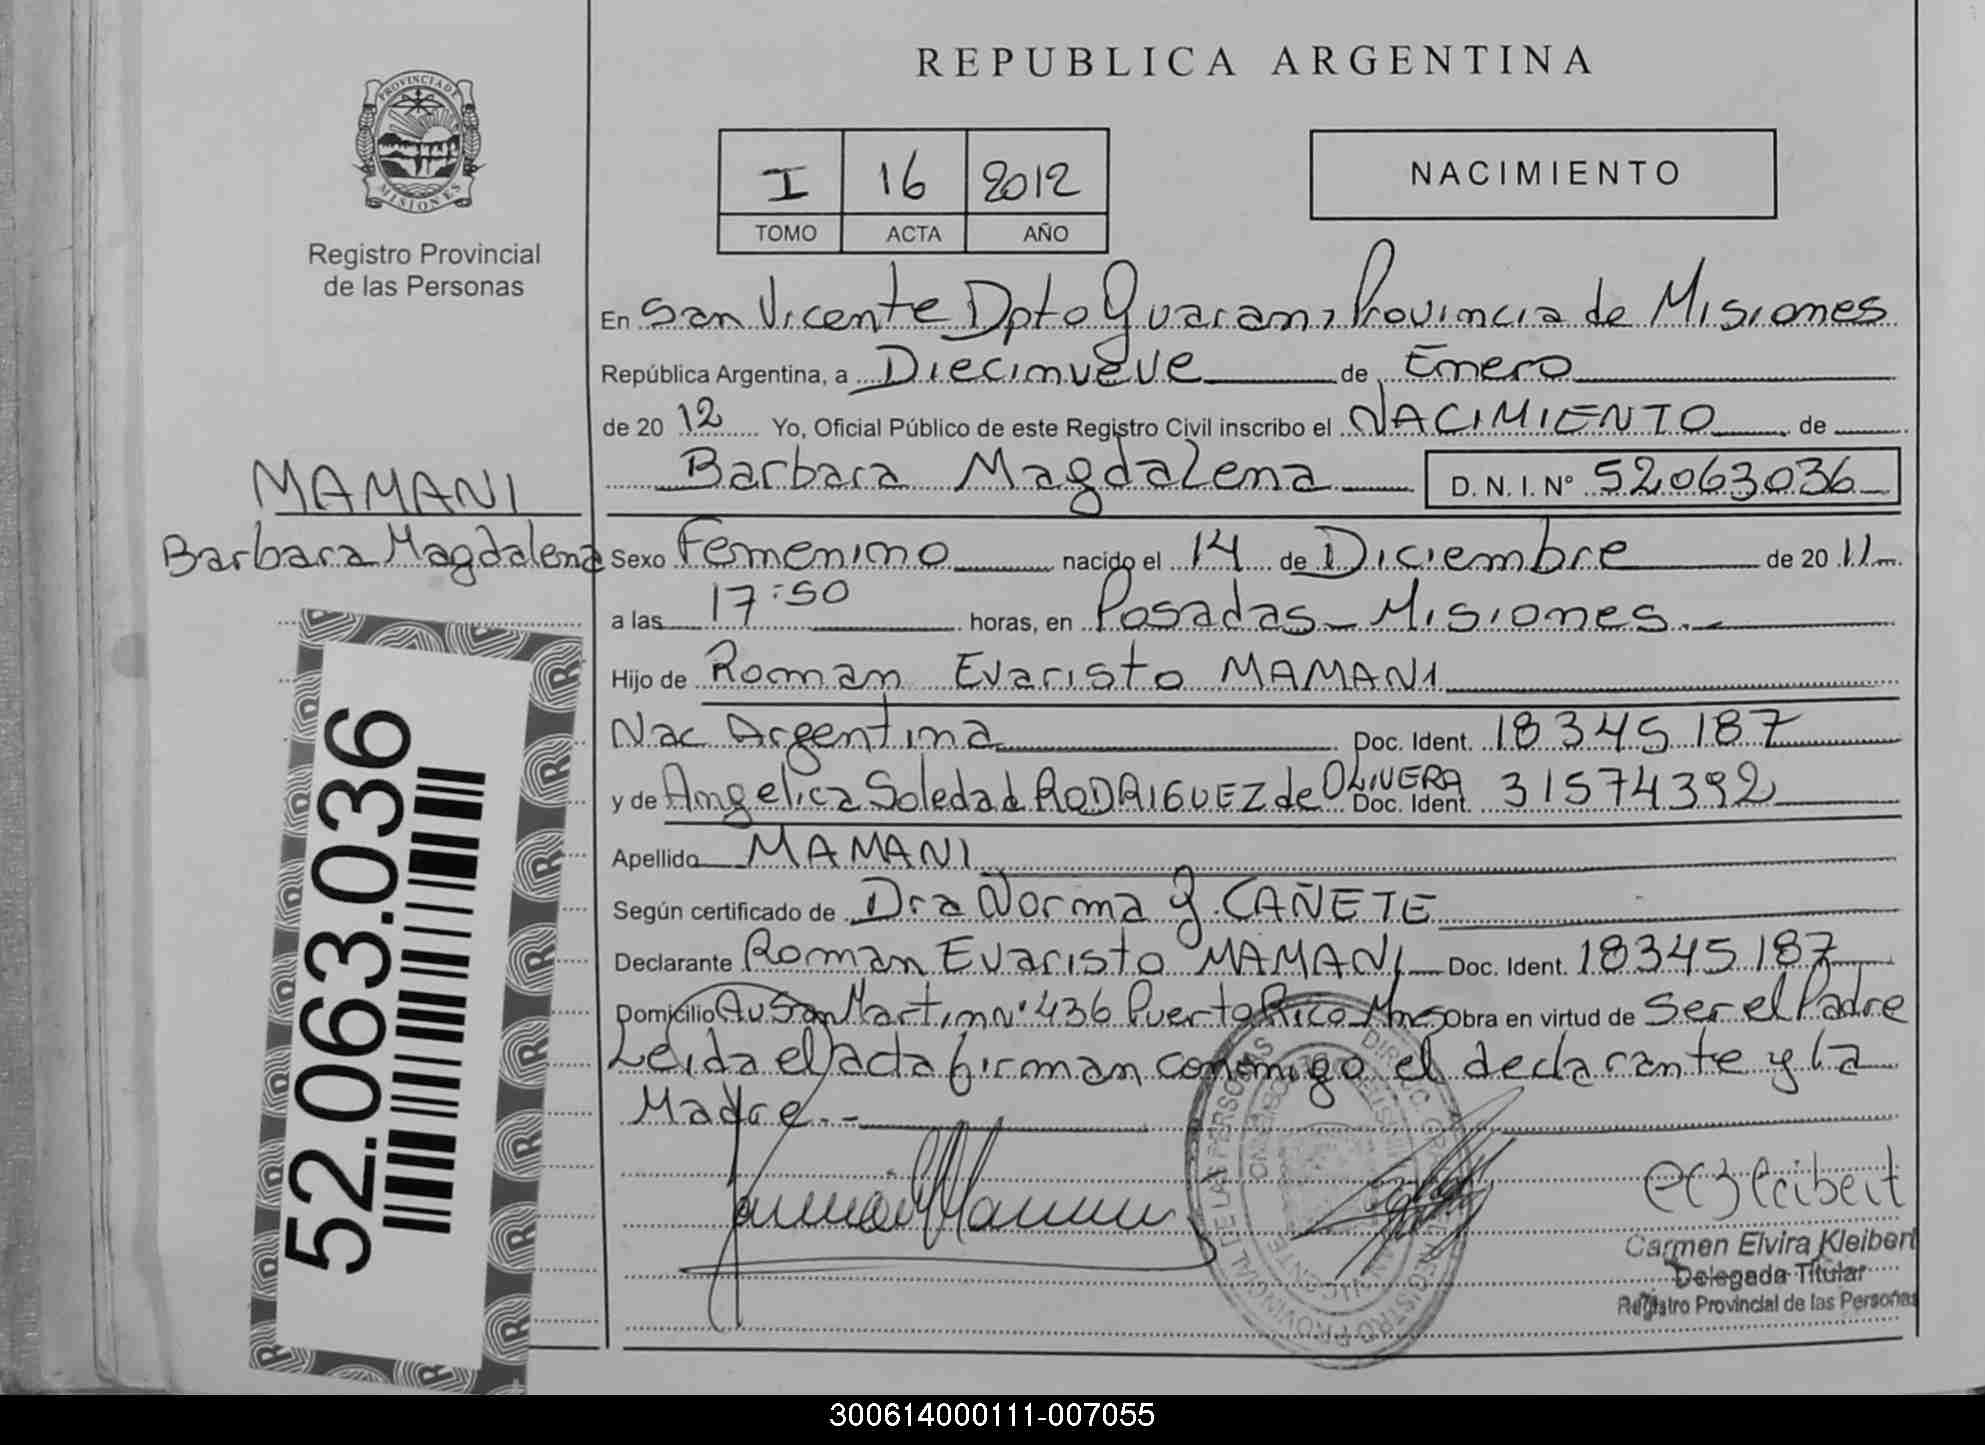 REPUBLICA ARGENTINA
PROVINCIA DE
MISIONES
Registro Provincial
de las Personas
I 16 2012
TOMO ACTA AÑO
NACIMIENTO
En San Vicente Dpto Guarani Provincia de Misiones
República Argentina, a Diecinueve de Enero
de 2012 Yo, Oficial Público de este Registro Civil inscribo el NACIMIENTO de
Barbara Magdalena D. N. I. Nº 52063036
MAMANI
Barbara Magdalena
Sexo Femenino nacido el 14 de Diciembre de 2011
a las 17:50 horas, en Posadas - Misiones.-
Hijo de Roman Evaristo MAMANI
Nac Argentina Doc. Ident. 18345187
y de Angelica Soledad RODRIGUEZ de OLIVERA Doc. Ident. 31574392
Apellido MAMANI
Según certificado de Dra Norma G. CAÑETE
Declarante Roman Evaristo MAMANI Doc. Ident. 18345187
Domicilio Av San Martin Nº 436 Puerto Rico Mnes Obra en virtud de Ser el Padre
Leida el acta firman conmigo el declarante y la
Madre.-
52.063.036
Carmen Elvira Kleibert
Delegada Titular
Registro Provincial de las Personas
300614000111-007055